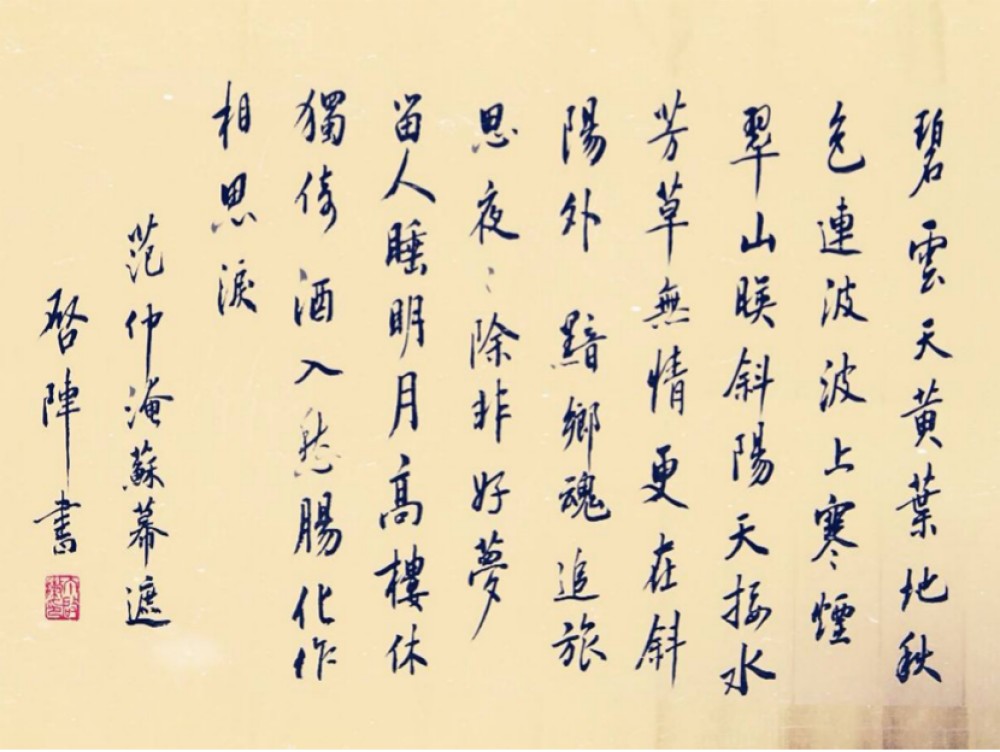 碧雲天黃葉地秋
色連波波上寒煙
翠山暎斜陽天接水
芳草無情更在斜
陽外 黯鄉魂追旅
思夜〻除非好夢
留人睡明月高樓休
獨倚 酒入愁腸化作
相思淚
范仲淹蘇幕遮
啓陣書